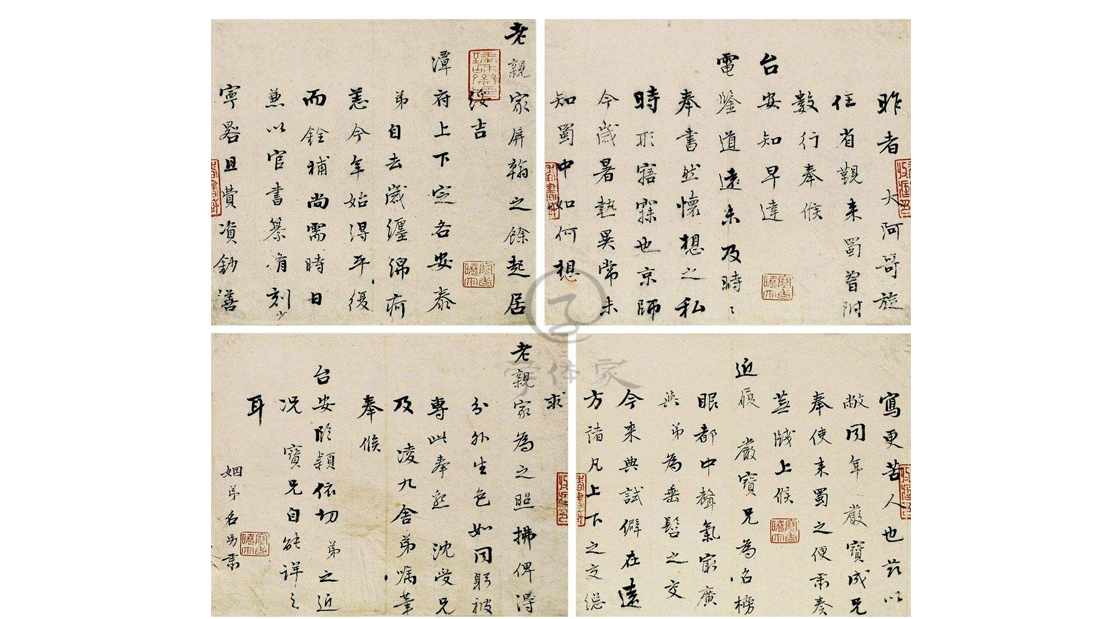 昨者 大阿哥旋
任省觀来蜀曾附
數行奉候
台安知早達
電鑒道遠未及時〻
奉書然懷想之私
時形寤寐也京師
今歲暑熱異常未
知蜀中如何想
老親家屏翰之餘起居
綏吉
潭府上下定各安泰
弟自去歲纏綿痾
恙今年始得平復
而銓補尚需時日
兼以官書纂脩刻少
寧晷且費資鈔謄
寫更苦人也茲以
敝同年嚴寶成兄
奉使来蜀之便肅奏
蕪牋上候
近履 嚴寶兄為名榜
眼都中聲氣最廣
與弟為垂髫之交
今来典試僻在遠
方諸凡上下之交總
求
老親家為之照拂俾得
分外生色如同躬被
專此奉懇 沈受兄
及 凌九舍弟囑筆
奉候
台安臨穎依切 弟之近
況 寶兄自能詳之
耳
姻弟名另肅
字体家